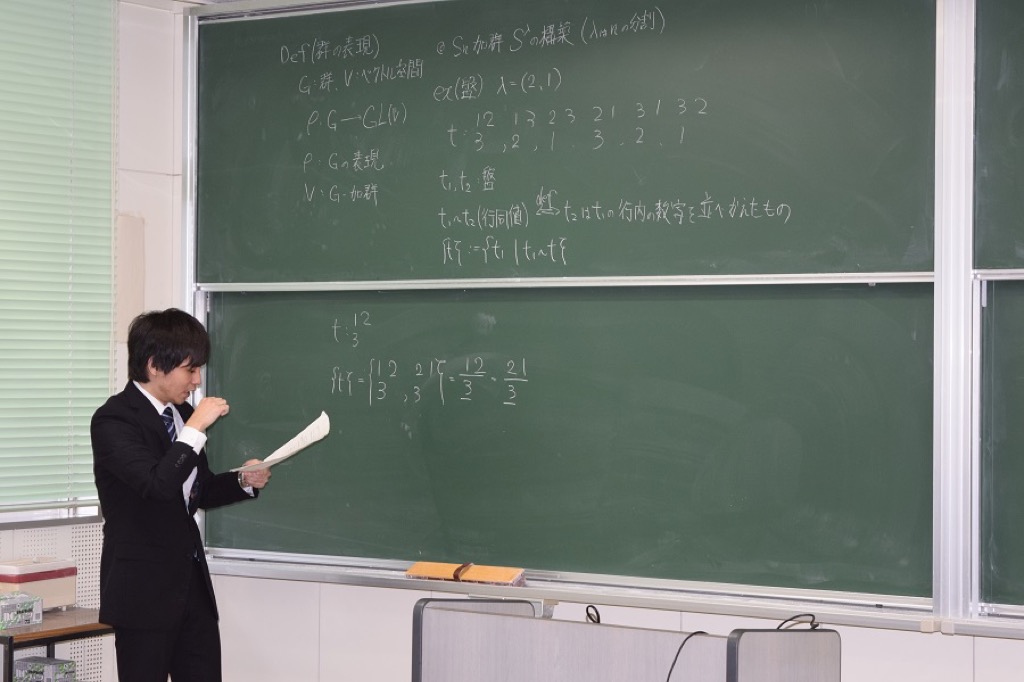 Def(群の表現)
G:群、V:ベクトル空間
ρ:G→GL(V)
ρ:Gの表現
V:G-加群
@ Sn加群 S^λの構築 (λはnの分割)
ex(盤) λ=(2,1)
t: 12 13 23 21 31 32
3 , 2 , 1 . 3 . 2 . 1
t₁,t₂:盤
t₁~t₂(行同値) ⇔ t₂はt₁の行内の数字を並べかえたもの
{t}:={t₁|t₁~t}
t: 12
3
{t}={12 21}=12 = 21
3 , 3 3 3